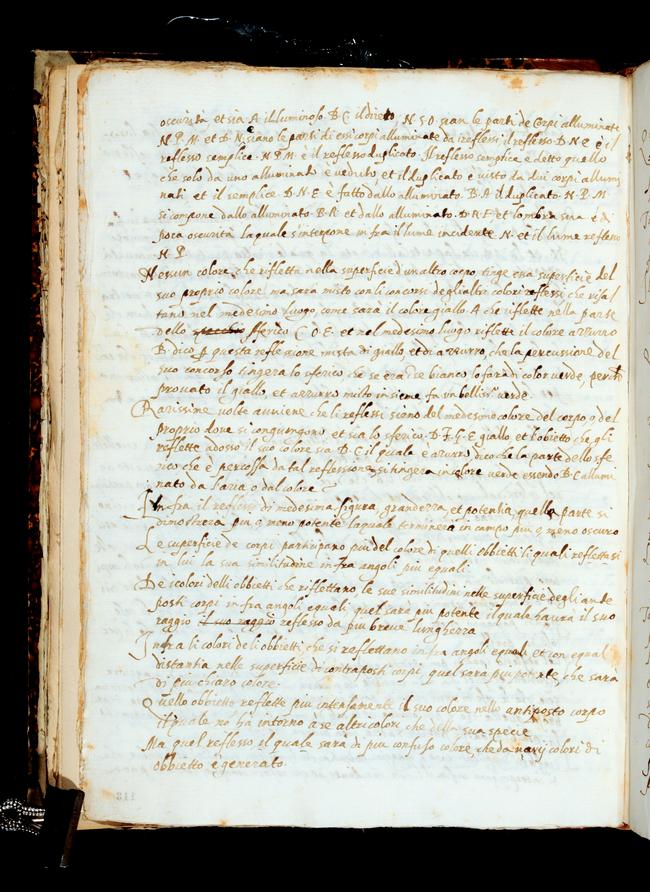 oscurità et sia A. il luminoso. B.C. il direto, N.S.O. sian le parti de Corpi alluminate
N.P.M. et D.N. siano le parti di essi corpi alluminate da i reflessi il reflesso. D.N.E. è il
reflesso semplice. N.P.M. è il reflesso duplicato. Il reflesso semplice è detto quello
che solo da uno alluminato è ueduto, et il duplicato è uisto da dui corpi allumi
nati et il semplice. D.N.E. è fatto dallo alluminato. B.A. il duplicato. N.P.M.
si compone dallo alluminato. B.R. et dallo alluminato. D.R.E. et l'ombra sua è di
poca oscurità laquale s'interpone in fra il lume incidente. N. et il lume reflesso
N.P.
Nessun colore, che rifletta nella superficie d'un altro corpo, tinge essa superficie del
suo proprio colore ma sarà misto con li concorsi degli altri colori reflessi, che risal
tano nel medesimo luogo, come sarà il colore giallo. A che riflette nella parte
dello specchio sferico C.O.E. et nel medesimo luogo riflette il colore azzurro
B. dico p questa reflessione mista di giallo, et di azzurro, che la percussione del
suo concorso tingerà lo sferico che se era in se bianco lo farà di color uerde, perche
prouato il giallo, et azzurro misto insieme fa un bellissº uerde.
Rarissime uolte auuiene che li reflessi sieno del medesimo colore del corpo, o del
proprio doue si congiungono, et sia lo sferico. D.F.G.E giallo, et l'obietto che gli
reflette adosso il suo colore sia. B.C. il quale è azurro dico che la parte dello sfe
rico che è percossa da tal reflessione, si tingerà in colore uerde essendo B.C. allumi
nato da l'aria o dal colore
In fra il reflesso di medesima figura, grandezza, et potentia, quella parte si
dimostrerà piu o meno potente laquale terminerà in campo più o meno oscuro
Le superficie de corpi participano più del colore di quelli obbietti li quali reflettasi
in lui la sua similitudine infra angoli piu equali
De i colori delli obbietti che riflettano le sue similitudini nelle superficie degli ante
posti corpi in fra angoli equali quel sarà piu potente il quale haurà il suo
raggio il suo raggio reflesso da piu breue lunghezza
In fra li colori de li obbietti, che si reflettano infra angoli equali et con equal
distantia nelle superficie di contraposti corpi, quel sarà piu potente, che sarà
di piu chiaro colore.
Quello obbietto reflette piu intensamente il suo colore nello antiposto corpo
il quale nō ha intorno a se altri colori che della sua specie
Ma quel reflesso il quale sara di piu confuso colore, che da uarij colori di
obbietto è generato.